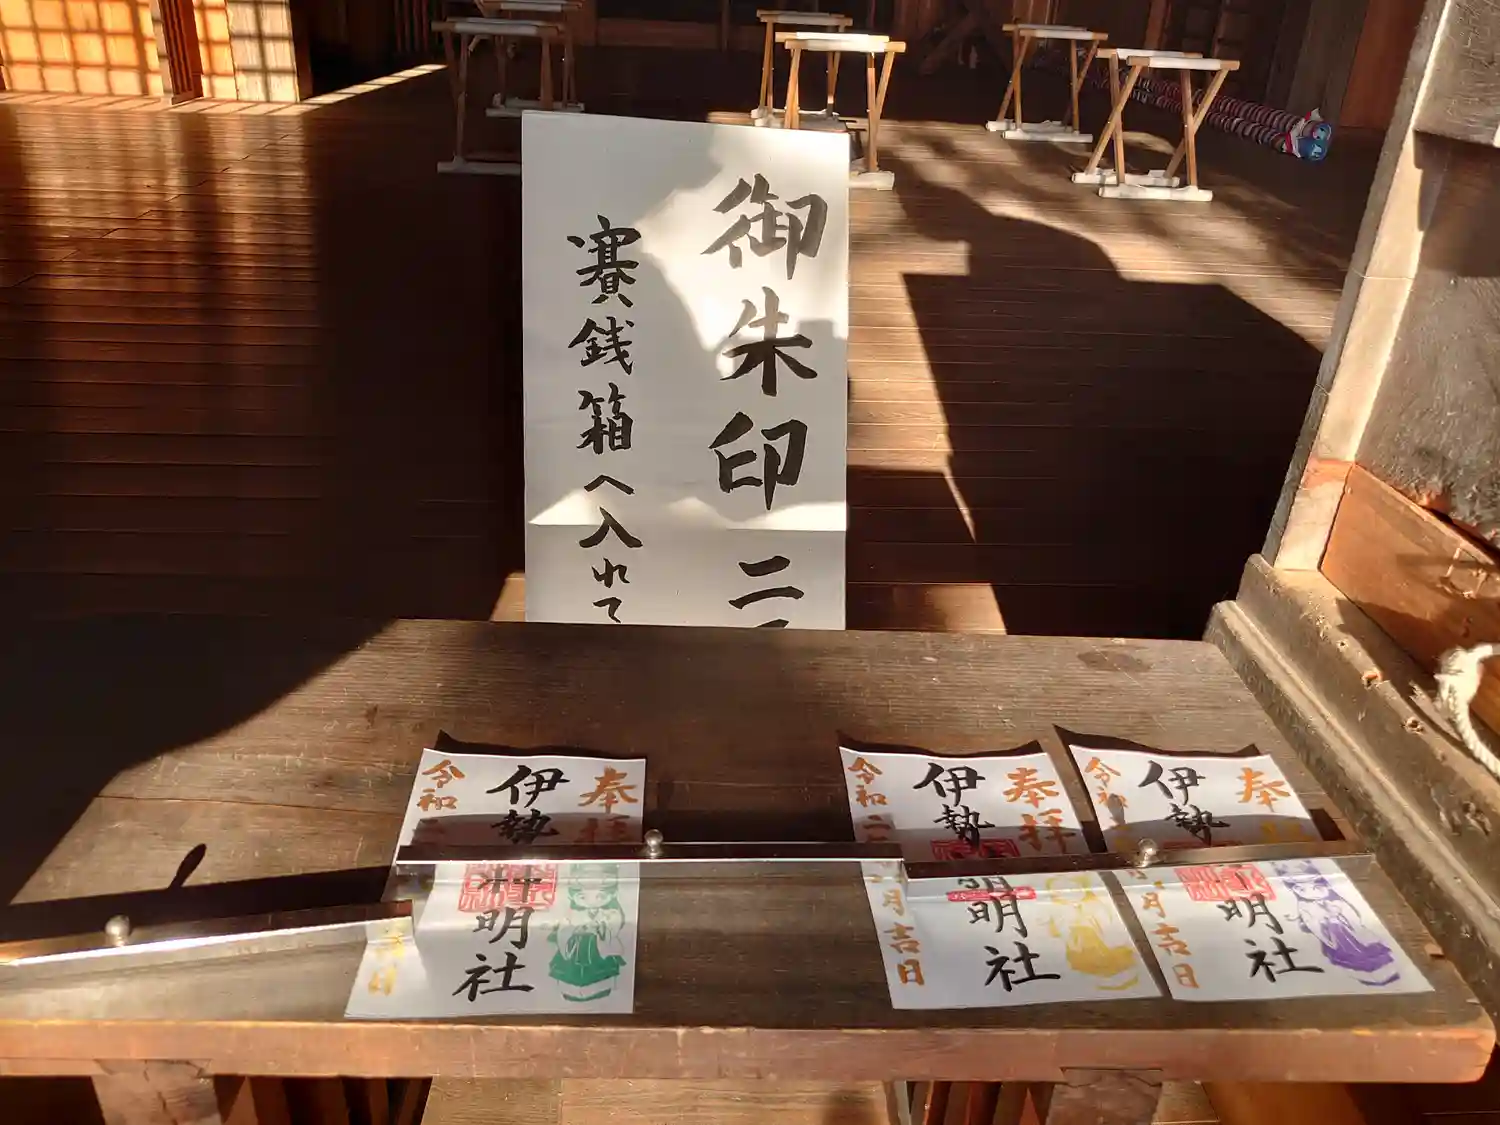 御朱印 二
賽銭箱へ入れて
奉拝
伊勢神明社
令和二
吉日
奉拝
伊勢神明社
令和二
月吉日
奉拝
伊勢神明社
令和
月吉日